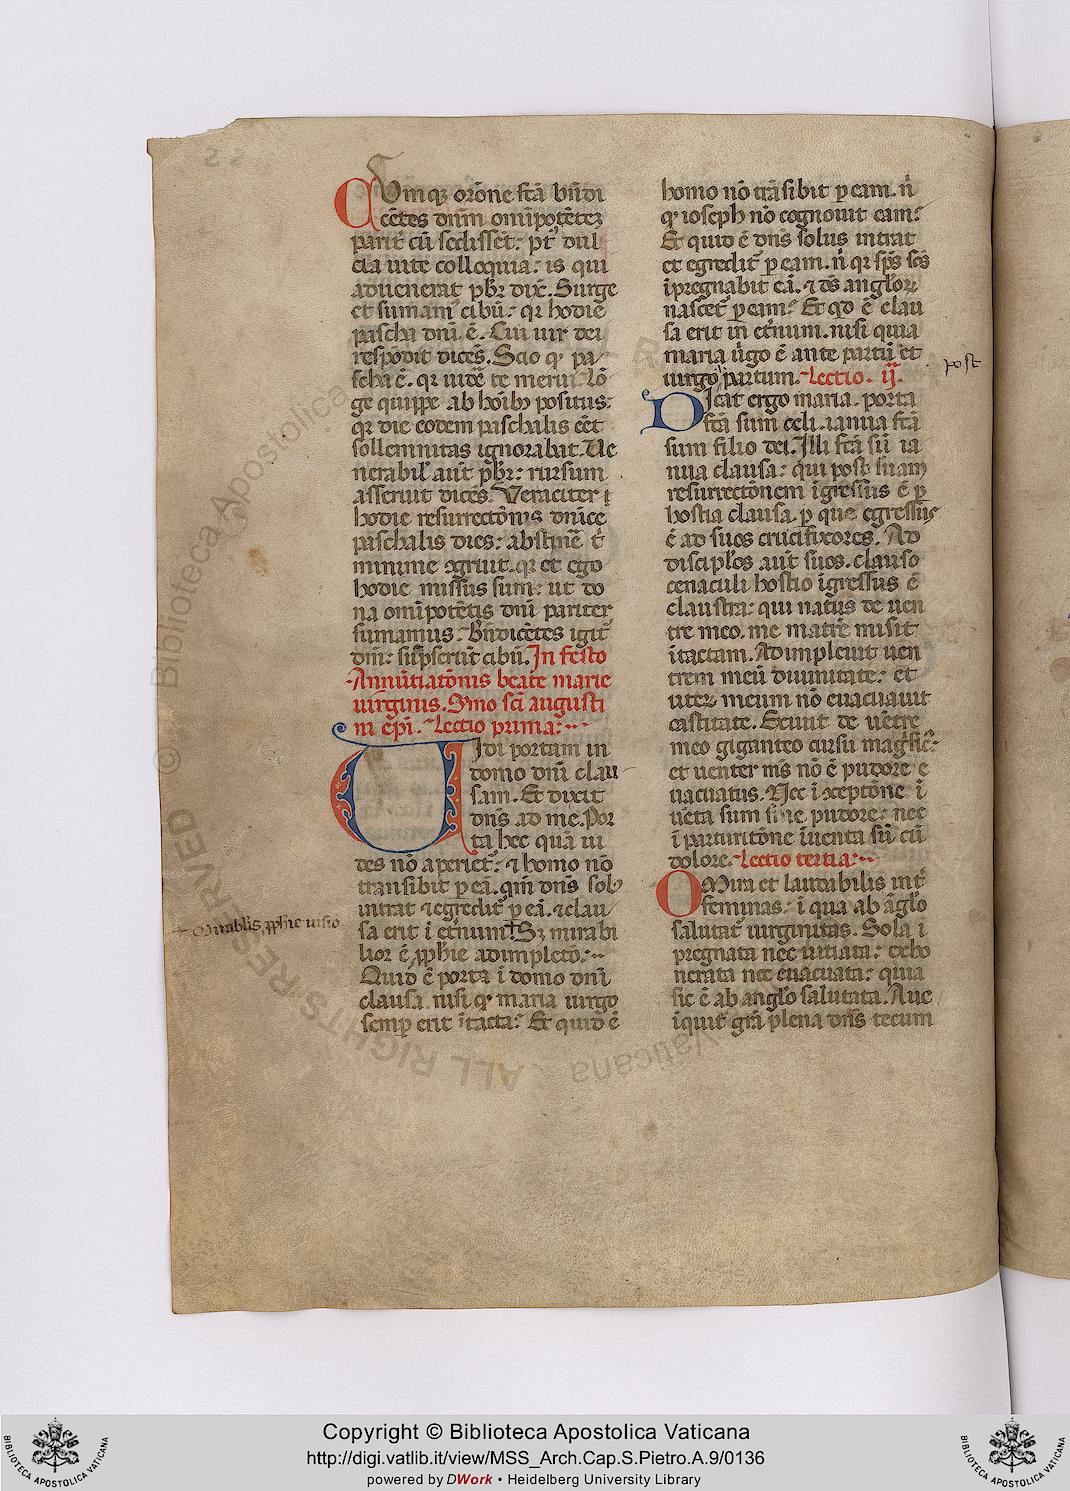 Cumq; orōne fcā bn̄di
cētes dn̄m omīpotētez
parit̃ cū sedissēt: pt̃ dul
cia uite colloquia: is qui
aduenerat pb̃r dix̃. Surge
et sumam; cibū: qr hodie
pascha dn̄i ē. Cui uir dei
respōdit dicēs. Scio qr pa/
scha ē. qr uidē te merui. Lō
ge quippe ab hoib; positus:
qr die eodem paschalis eēt
sollemnitas ignorabat. Ue
nerabil' aut̃ pb̃r: rursum
asseruit dicēs. Veraciter i
hodie resurrectōnis dn̄ice
paschalis dies: abstinē t'
minime ꝯgruit. qr et ego
hodie missus sum: ut do
na omīpotētis dn̄i pariter
sumamus. Bn̄dicētes igit̃
dn̄m: sūpserūt cibū. In festo
Annūtiatōnis beate marie
uirginis. Smo sc̄i augusti
ni ep̄i. Lectio prima:
Uidi portam in
domo dn̄i clau
sam. Et dixit
dn̄s ad me. Por
ta hec quā ui
des nō aperiet̃: ⁊ homo nō
transibit p eā. qm̄ dn̄s sol'
intrat ⁊ egredit̃ p eā. ⁊ clau
sa erit i et̃num. Sz mirabi
lior ē ꝓphie adimpletō:
Quid ē porta i domo dn̄i
clausa nisi qr maria uirgo
semp erit ītacta: Et quid ē
+ mirablis ꝓphie uisio
homo nō trāsibit p eam. n̄
qr ioseph nō cognouit eam:
Et quid ē dn̄s solus intrat
et egredit̃ p eam. n̄ qr sp̄s sc̄s
īpregnabit eā. ⁊ dn̄s angloꝝ
nascet̃ p eam: Et qd ē clau
sa erit in et̃num. nisi quia
maria ùgo ē ante partū et
uirgo partum. Lectio. ij.
post
Dicat ergo maria. porta
fcā sum celi. ianua fcā
sum filio dei. Illi fcā sū ia
nua clausa: qui post suam
resurrectōnem īgressus ē p
hostia clausa. p que egressus
ē ad suos crucifixores. Ad
discipl'os aut̃ suos. clauso
cenaculi hostio īgressus ē
claustra: qui natus de uen
tre meo. me matrē misit
ītactam. Adimpleuit uen
trem meū diuinitate: et
uterz meum nō euacuauit
castitate. Exiuit de uētre
meo giganteo cursu magn̄fic:
et uenter ms̄ nō ē pudore e
uacuatus. Nec i ꝯceptōne i
uēta sum sine pudore: nec
i parturitōne īuenta sū cū
dolore. Lectio tertia:
O Mira et laudabilis int̃
feminas: i qua ab āglo
salutat̃ uirginitas. Sola i
pregnata nec uitiata: exho
nerata nec euacuata: quia
sic ē ab anglo salutata. Aue
īquit grā plena dn̄s tecum
Copyright © Biblioteca Apostolica Vaticana
http://digi.vatlib.it/view/MSS_Arch.Cap.S.Pietro.A.9/0136
powered by DWork • Heidelberg University Library
BIBLIOTECA APOSTOLICA VATICANA
BIBLIOTECA APOSTOLICA VATICANA